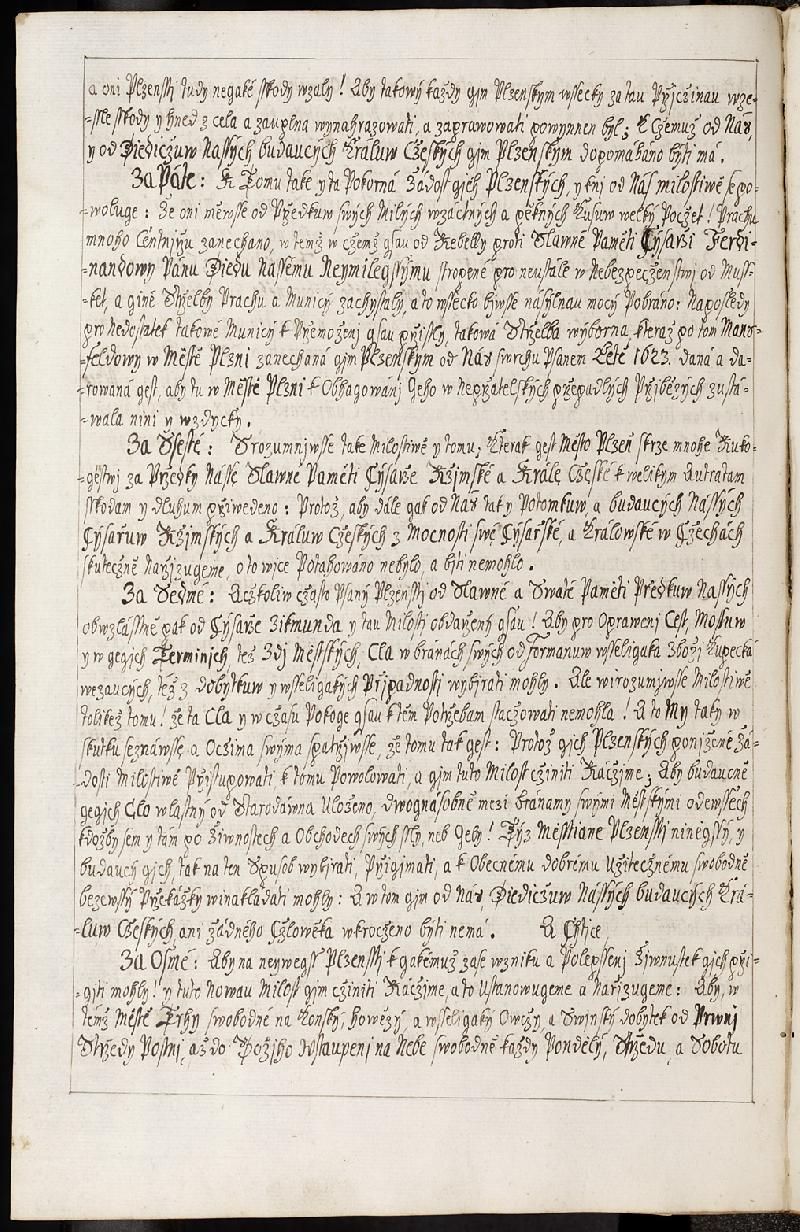 a oni Plzensstj tudy negaké sskody wzaly! Aby takowý každy gjm Plzenskym wssecky za tau Přjcžinau wze-
-sste sskody y hned z cela a zauplna wynahrazowati, a zaprawowati powynnen byl; K cžemuž od Nás,
y od Diedicžuw Nassých budaucých Králuw Cžeských gjm Plzenským dopomáháno býti má.
Za Páte: K Tomu také y ta Pokorná Žádost gjch Plzenských, y knj od Nás milostiwě se po-
-woluge: Že oni měwsse od Předkuw swých Milých wzáctných a pěkných Kusuw welký Pocžet! Prachu
mnoho Centnýřu zanechano, w temž w cžemž gsau od Rebelly proti Slawné Paměti Cýsaři Ferdi-
-nandowy Pánu Diedu Nassemu Neymilegssýmu stropené pro neustálé w Nebezpecženstwj od Muss-
-ket, a giné Střelby Prachu a Municý zachystaly, a to wssecko bywsse násylnau mocý Pobráno: Naposledy
pro nedostatek takowé Municý k Přemoženj gsau přissly, taková Střelba wýborna, kteraž po tom Mans-
-feldowy w Městě Plzni zanechaná gjm Plzenským od Nás swrchu Psanem Létě 1623. daná a da-
-rowaná gest, aby tu w Městě Plzni k Obhagowánj Geho w Nepřátelských přepadlých Přjběžých zustá-
-wala nini y wzdycky.
Za Ssesté: Srozumnjwsse také Milostiwě y tomu; Kterak gest Město Plzeň skrze mnohé Ruko-
-gěstwj za Przedky Nássé Slawné Paměti Cýsaře Ržjmské a Krále Cžeské k welikým Autratám
sskodam y dluhum přiwedeno: Protož, aby dále gak od Nás tak y Potomkuw, a budaucých Nássých
Cýsařuw Ržjmských a Králuw Cžeských z Mocnosti swé Cýsařské, a Královské w Cžechách
skutecžně nařjzugeme, o to wice Potahowáno nebylo, a býti nemohlo.
Za Sedmé: Acžkoliw cžasto Psaný Plzensstj od Slawné a Swaté Paměti Předkuw Nassých
obwzlásstně pak od Cýsaře Zikmunda y tau Milosti obdařený gsau! Aby pro Oprawenj Cest, Mostuw
y w gegich Terminjch, též Zdj Městských, Cla w bránách swých od Formanuw wsseligaka Zbožj Kupecká
wezaucých, též z dobytkuw y wsseligakých Přjpadnosti wybjrati mohly. Ale wirozumjwsse Milostiwě
tolikéž tomu! že ta Cla y w cžasu Pokoge gsau k těm Potřebam stacžowati nemohla! A to My taky w
skutku seznáwsse a Ocžima swýma spatřjwsse, že tomu tak gest: Protož gjch Plzenských ponjžené žá-
-dosti Milostiwě Přistupowati, k tomu Powolowati, a gjm tuto Milost cžiniti Rácžjme; Aby budaucně
gegich Clo wlastný od Starodáwna Uloženo, dwognásobně mezi Bránamy swými Městskými ode wssech
kdožby sem y tám po Žiwnostech a Obchodech swých ssly, neb Geli! Týž Měsstiane Plzensstj nineyssý, y
budaucý gjch, tak na ten Spusob wybjrati, Přigjmati, a k Obecnému dobrému Užitecžnému swobodně
beze wssý Překážky winakládati mohly: A w tom gjm od Nás, Diedicžuw Nássých budaucých Krá-
-luw Cžeských ani žádného Cžlowěka wkrocženo býti nemá. A Chtice
Za Osmé: Aby na neywegss Plzensstj k gakémuž zase wzniku a Polepssenj Žiwnustek gjch při-
-gjti mohly! y tuto Nowau Milost gjm cžiniti Rácžjme, a to Ustanowugeme a Nařizugeme: Aby, w
témž Městě Trhy swobodné na Konský, howězý, a wsseligaký Owcžý, a Swinský dobytek od Prwnj
Středy Postnj, až do Božjho Wstaupenj na Nebe swobodně každý Pondělý, Středu, a Sobotu